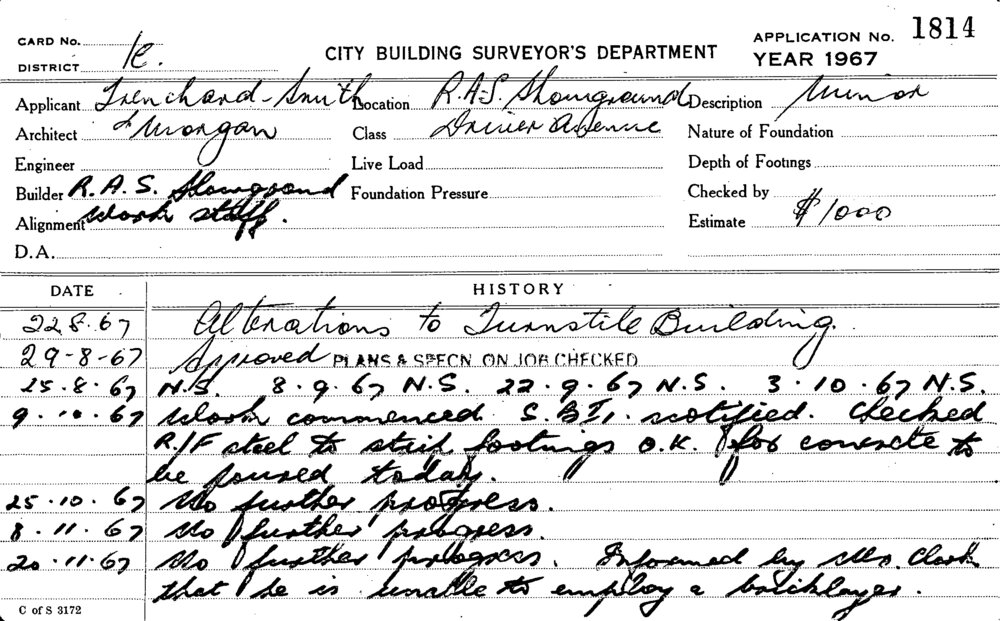 CARD No. 1814
DISTRICT 1c. CITY BUILDING SURVEYOR'S DEPARTMENT APPLICATION No. YEAR 1967
Applicant Trenchard-Smith Location R.A.S. Showground Description Minor
Architect & Morgan Class Driver Avenue Nature of Foundation
Engineer Live Load Depth of Footings
Builder R.A.S. Showgrond Foundation Pressure Checked by
Alignment work staff. Estimate $1000
D.A.
DATE HISTORY
22.8.67 Alterations to Turnstile Building.
29-8-67 Approved PLANS & SPECN. ON JOB CHECKED
25.8.67 N.S. 8.9.67 N.S. 22.9.67 N.S. 3.10.67 N.S.
9.10.67 Work commenced. S.B.I. notified. Checked
R/F steel to strip footings O.K. for concrete to
be poured today.
25.10.67 No further progress.
8.11.67 No further progress.
20.11.67 No further progress. Informed by Mr. Clark
that he is unable to employ a bricklayer.
C of S 3172